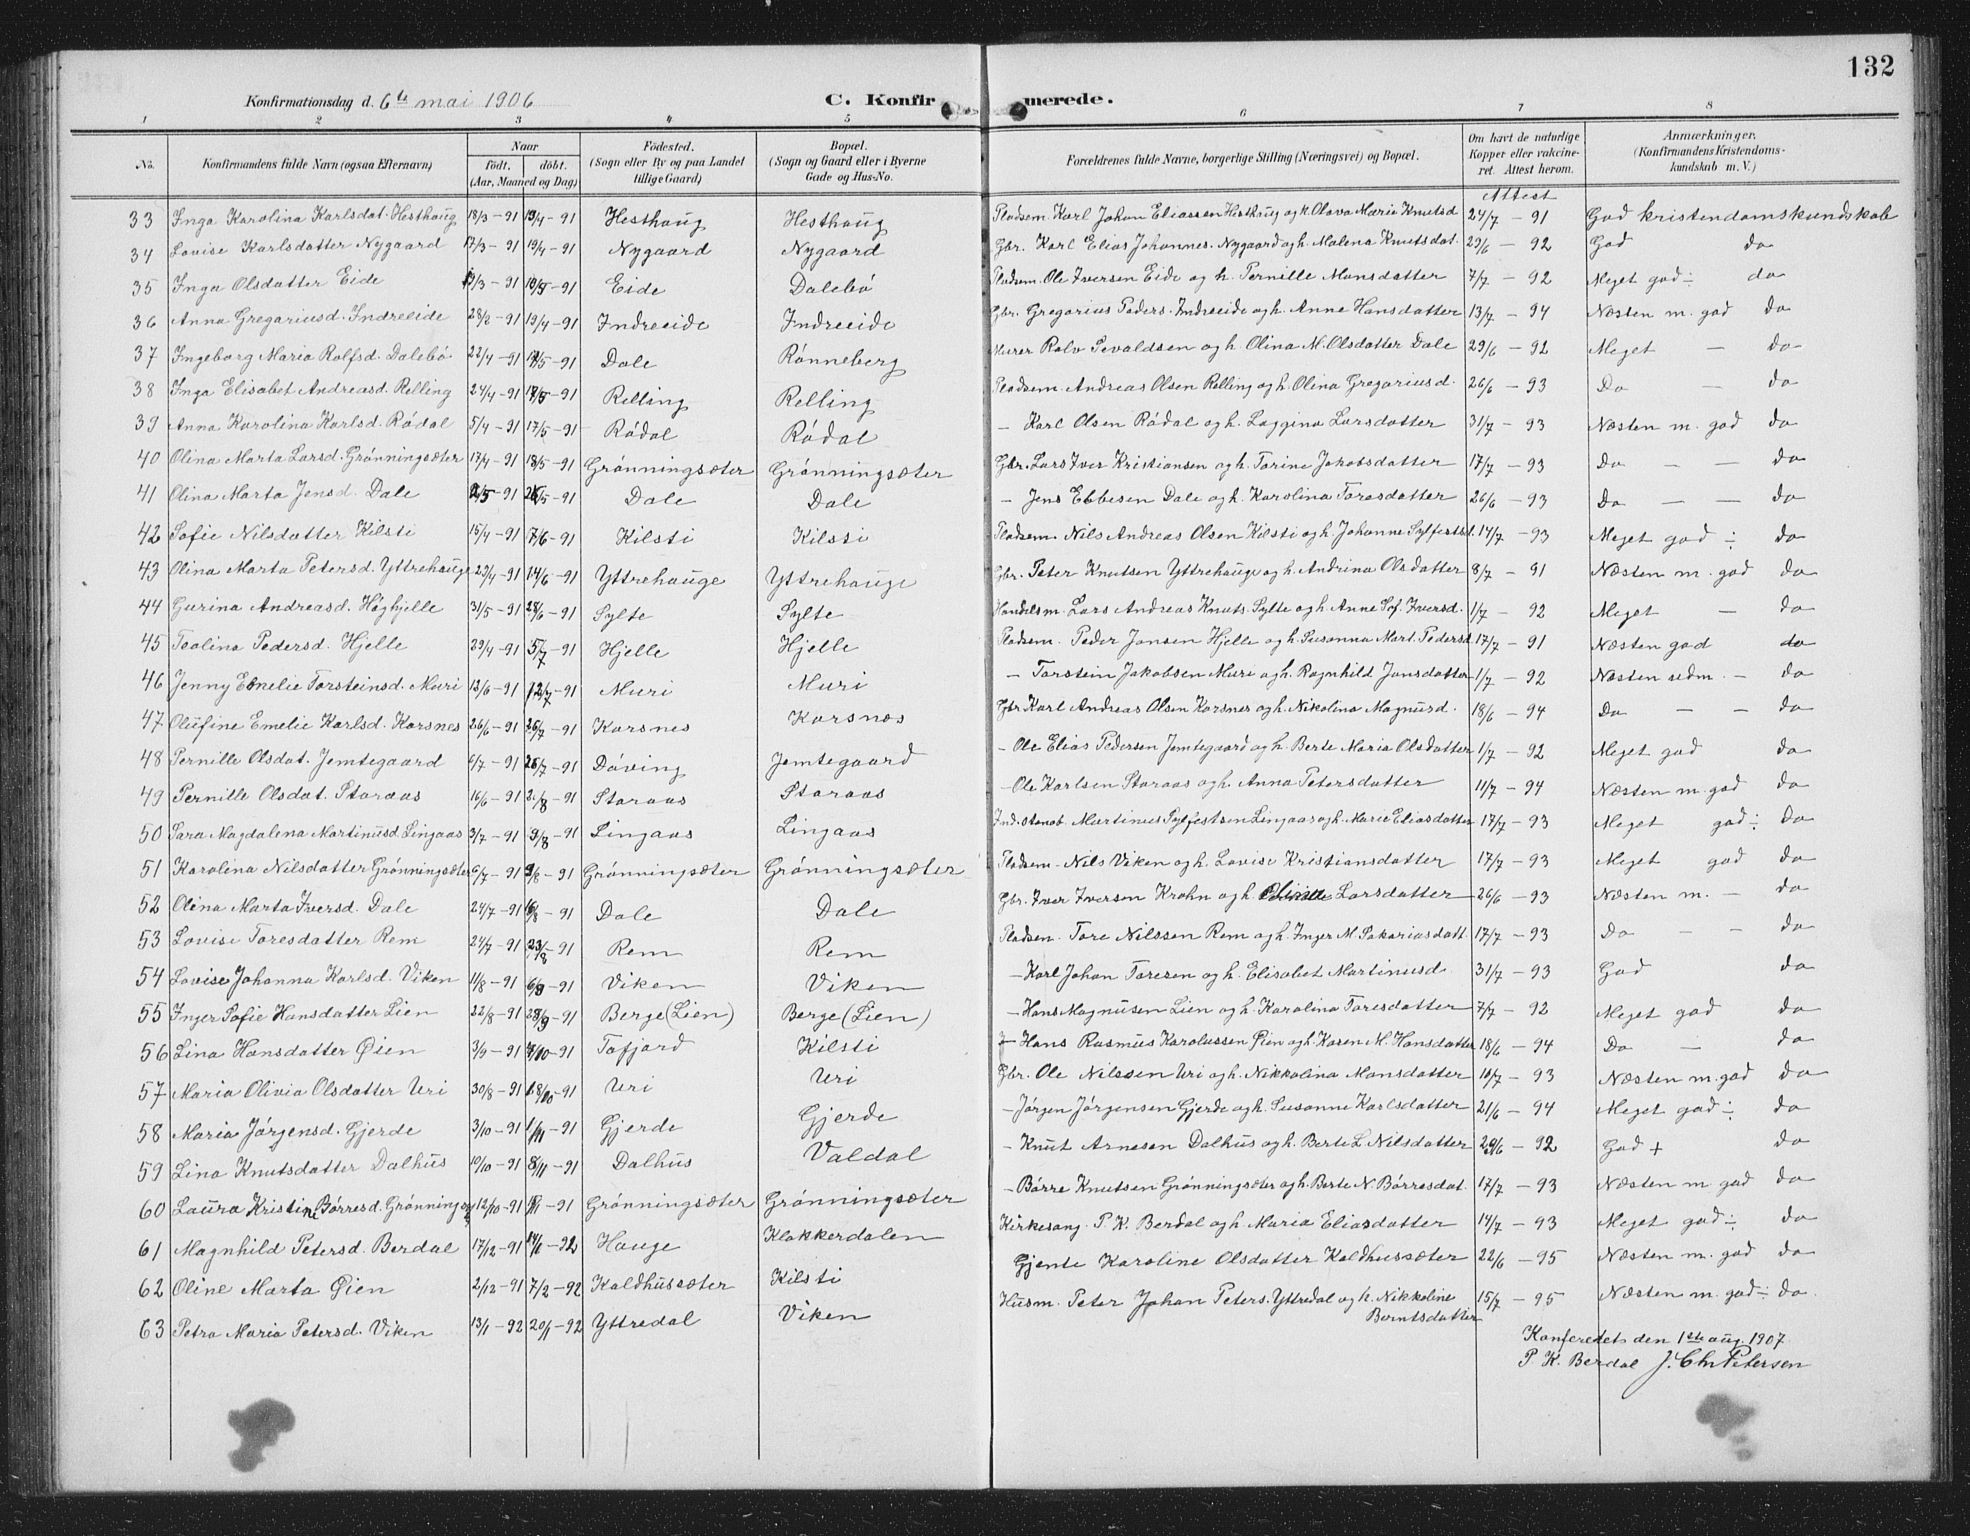 132
Konfirmationsdag d. 6te mai 1906 C. Konfirmerede.
1 2 3 4 5 6 7 8
No. Konfirmandens fulde Navn (ogsaa Efternavn) Naar født, døbt. (Aar, Maaned og Dag) Fødested. (Sogn eller By og paa Landet tillige Gaard) Bopæl. (Sogn og Gaard eller i Byerne Gade og Hus-No. Forældrenes fulde Navne, borgerlige Stilling (Næringsvei) og Bopæl. Om havt de naturlige Kopper eller vakcineret. Attest herom. Anmærkninger. (Konfirmandens Kristendomskundskab m. V.)
Attest
33 Inga Karolina Karlsdat. Hesthaug 18/3-91 19/4-91 Hesthaug Hesthaug Pladsem. Karl Johan Eliassen Hesthaug og h. Olava Marie Knutsd 24/7-91 God kristendomskundskab
34 Lovise Karlsdatter Nygaard 17/3-91 19/4-91 Nygaard Nygaard Gbr. Karl Elias Johannes. Nygaard og h. Malena Knutsdat. 29/6-92 God do
35 Inga Olsdatter Eide 19/3-91 10/5-91 Eide Dalebø Pladsem. Ole Iversen Eide og h. Pernille Monsdatter 7/7-92 Meget god ÷ do
36 Anna Gregariusd. Indreeide 28/2-91 19/4-91 Indreeide Indreeide Gbr. Gregarius Peders. Indreeide og h. Anne Hansdatter 13/7-94 Næsten m. god do
37 Ingeborg Maria Rolfsd. Dalebø 22/4-91 17/5-91 Dale Rønneberg Murer Rolv Sevaldsen og h. Olina M. Olsdatter Dale 29/6-92 Meget - do
38 Inga Elisabet Andreasd. Relling 24/4-91 17/5-91 Relling Relling Pladsem. Andreas Olsen Relling og h. Olina Gregariusd. 26/6-93 Do - do
39 Anna Karolina Karlsd. Rødal 5/4-91 17/5-91 Rødal Rødal - Karl Olsen Rødal og h. Laggina Larsdatter 31/7-93 Næsten m. god do
40 Olina Marta Larsd. Grønningsæter 17/4-91 18/5-91 Grønningsæter Grønningsæter Gbr. Lars Iver Kristiansen og h. Torine Jakobsdatter 17/7-93 Do - - do
41 Olina Marta Jensd. Dale 2/5-91 /5-91 Dale Dale - Jens Ebbesen Dale og h. Karolina Toresdatter 26/6-93 Do - - do
42 Sofie Nilsdatter Kilsti 15/4-91 7/6-91 Kilsti Kilsti Pladsem. Nils Andreas Olsen Kilsti og h. Johanne Sylfestsd. 14/7-93 Meget god ÷ do
43 Olina Marta Petersd. Yttrehauge 29/4-91 14/6-91 Yttrehauge Yttrehauge Gbr. Peter Knutsen Yttrehauge og h. Andrina Olsdatter 8/7-91 Næsten m. god do
44 Gurina Andreasd. Høghjelle 31/5-91 28/6-91 Sylte Sylte Handelsm. Lars Andreas Knuts. Sylte og h. Anne Sof. Iversd. 1/7-92 Meget - do
45 Taalina Pedersd. Hjelle 29/4-91 5/7-91 Hjelle Hjelle Pladsem. Peder Jonsen Hjelle og h. Susanna Mart. Pedersd. 17/7-91 Næsten god do
46 Jenny Emelie Torsteinsd. Muri 13/6-91 12/7-91 Muri Muri - Torstein Jakobsen Muri og h. Ragnhild Jonsdatter 1/7-92 Næsten sedm. - do
47 Olufine Emelie Karlsd. Korsnes 26/6-91 26/7-91 Korsnes Korsnæs Gbr. Karl Andreas Olsen Korsnes og h. Nikolina Magnusd. 18/6-94 Do - - do
48 Pernille Olsdat. Jemtegaard 6/7-91 26/7-91 Døving Jemtegaard - Ole Elias Pedersen Jemtegaard og h. Berte Maria Olsdatter 1/7-92 Meget god do
49 Pernille Olsdat. Storaas 16/6-91 2/8-91 Storaas Storaas - Ole Karlsen Storaas og h. Anna Petersdatter 11/7-94 Næsten m. god do
50 Sara Magdalena Martinusd. Lingaas 3/7-91 9/8-91 Lingaas Lingaas Martinus Sylfestsen Lingaas og h. Marie Eliasdatter 17/7-93 Meget god ÷ do
51 Karolina Nilsdatter Grønningsæter 6/7-91 9/8-91 Grønningsæter Grønningsæter Pladsem. Nils Viken og h. Lovise Kristiansdatter 17/7-93 Meget god do
52 Olina Marta Iversd. Dale 24/7-91 16/8-91 Dale Dale Gbr. Iver Iversen Krohn og h. Larsdatter 26/6-93 Næsten m. - do
53 Lovise Toresdatter Rem 24/7-91 23/8-91 Rem Rem Pladsem. Tore Nilssen Rem og h. Inger M. Sakariasdatt. 17/7-93 Do - - do
54 Lovise Johanna Karlsd. Viken 11/8-91 6/9-91 Viken Viken - Karl Johan Toresen og h. Elisabet Martinusd. 31/7-93 God do
55 Inger Sofie Hansdatter Lien 22/8-91 28/9-91 Berge (Lien) Berge (Lien) - Hans Magnusen Lien og h. Karolina Toresdatter 7/7-92 Meget god do
56 Lina Hansdatter Øien 3/9-91 4/10-91 Tafjord Kilsti - Hans Rasmus Karolussen Øien og h. Karen M. Hansdatter 18/6-94 Do - do
57 Maria Olivia Olsdatter Uri 30/8-91 18/10-91 Uri Uri Gbr. Ole Nilssen Uri og h. Nikkolina Monsdatter 10/7-93 Næsten m. god do
58 Maria Jørgensd. Gjerde 3/10-91 1/11-91 Gjerde Gjerde - Jørgen Jørgensen Gjerde og h. Susanne Karlsdatter 21/6-94 Meget god ÷ do
59 Lina Knutsdatter Dalhus 10/10-91 8/11-91 Dalhus Valdal - Knut Arnesen Dalhus og h. Berte L. Nilsdatter 29/6-92 God + do
60 Laura Kristine Børresd. Grønningsæ 12/10-91 /11-91 Grønningsæter Grønningsæter - Børre Knutsen Grønningsæter og h. Berte N. Børresdat. 17/7-93 Næsten m. god do
61 Magnhild Petersd. Berdal 17/12-91 14/1-92 Hauge Klokkerdalen Kirkesang. P. K. Berdal og h. Maria Eliasdatter 14/7-93 Meget god ÷ do
62 Oline Marta Øien 2/12-91 7/2-92 Kaldhussæter Kilsti Gjente Karoline Olsdatter Kaldhussæter 22/6-95 Næsten m. god do
63 Petra Maria Petersd. Viken 13/1-92 20/1-92 Yttredal Viken Husm. Peter Johan Peters. Yttredal og h. Nikkoline Berntsdatter 15/7-95 Næsten m. god ÷ do.
Konfereret den 1ste aug. 1907
P. K. Berdal J. Chr Petersen